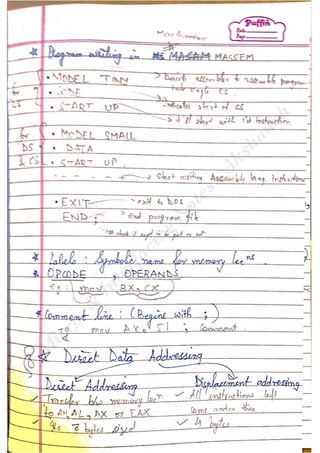 Puffin
Date
Page
* Program writing in MASAM MASSEM
• MODEL TINY → Direct assembler to assemble program
for CS • CODE into single CS
→ indicates start of CS
• START UP → 1st start with 1st instruction
for DS & CS • MODEL SMALL
• DATA
• START UP.
→ Start writing Assembly lang Instructions
• EXIT → exit to DOS
END ; → end program file
* Labels : Symbolic name for memory locns.
* OPCODE , OPERANDS
eg. mov BX, CX
* Comment line : (Begins with ;)
eg mov AX, 51 ; Comment
* Direct Data Addressing
Direct Addressing Displacement addressing
✓ Transfer b/w memory locn ✓ All instructions left
to AH, AL, AX or EAX come under this
✓ Its 3 bytes sized ✓ 4 bytes